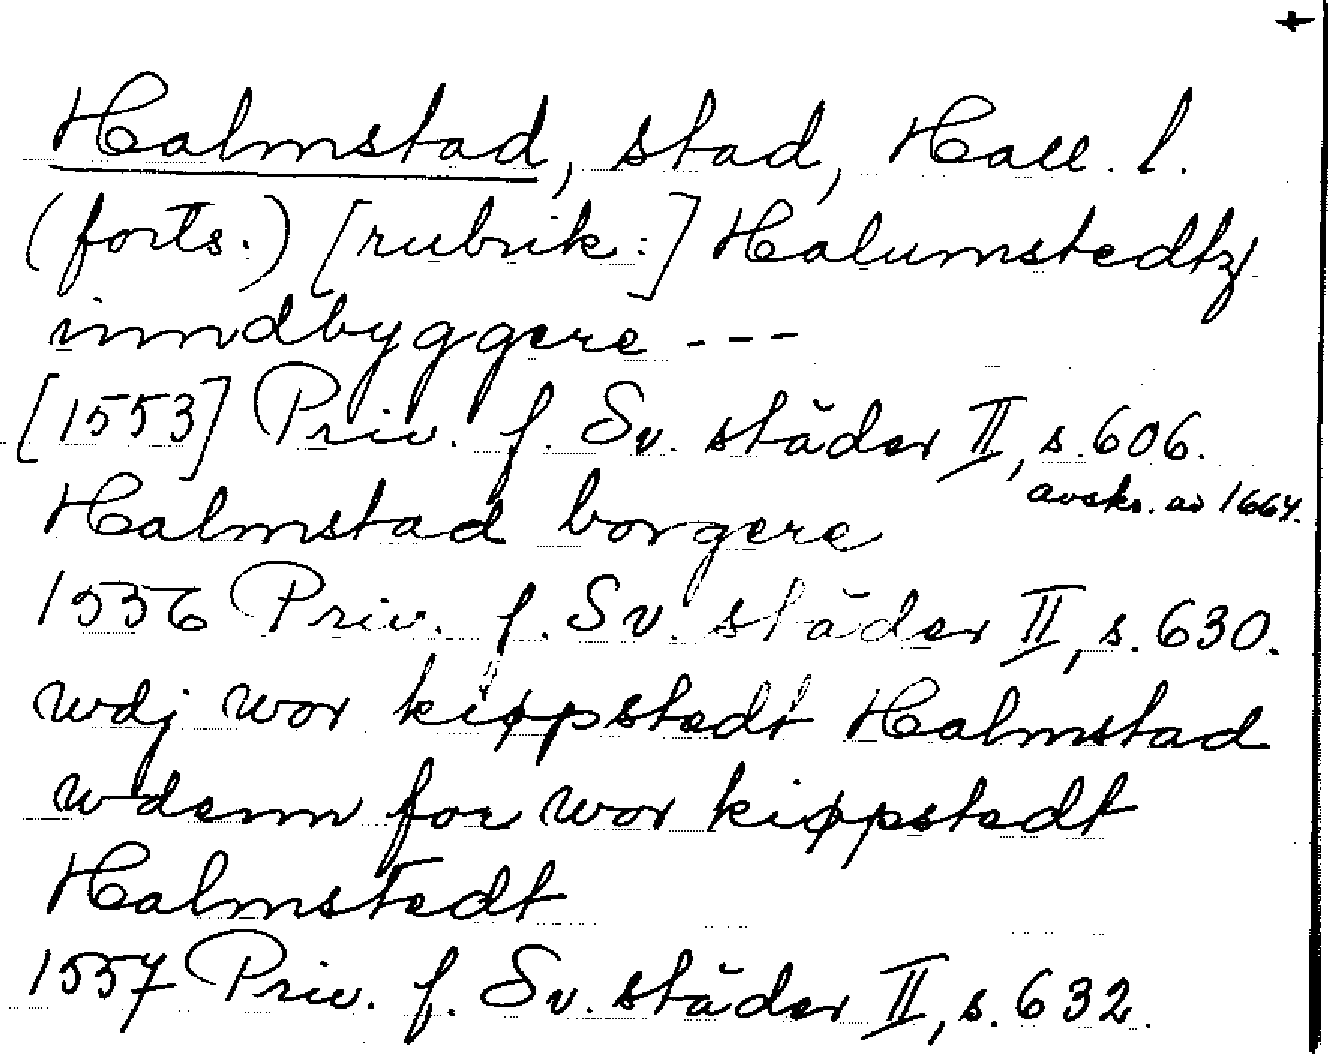 Halmstad, stad, Hall. l.
(forts.) [rubrik:] Halumstedtz
inndbyggere ---
[1553] Priv. f. Sv. städer II, s. 606.
avskr. av 1664.
Halmstad borgere
1556 Priv. f. Sv. städer II, s. 630.
wdj wor kiøpstedt Halmstad
wdenn for wor kiøpstedt
Halmstedt
1557 Priv. f. Sv. städer II, s. 632.